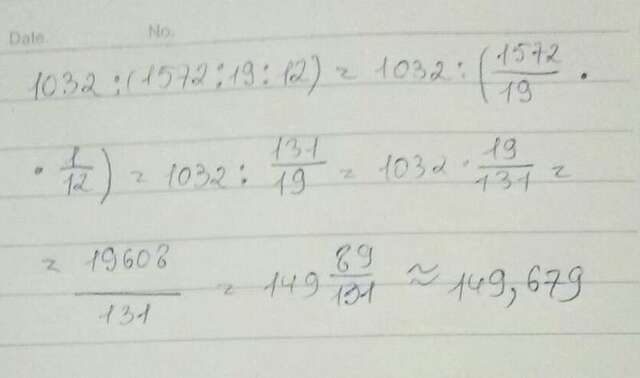 Date No.
1032 : (1572 : 19 : 12) = 1032 : (1572/19 ·
· 1/12) = 1032 : 131/19 = 1032 · 19/131 =
= 19608/131 = 149 89/131 ≈ 149,679